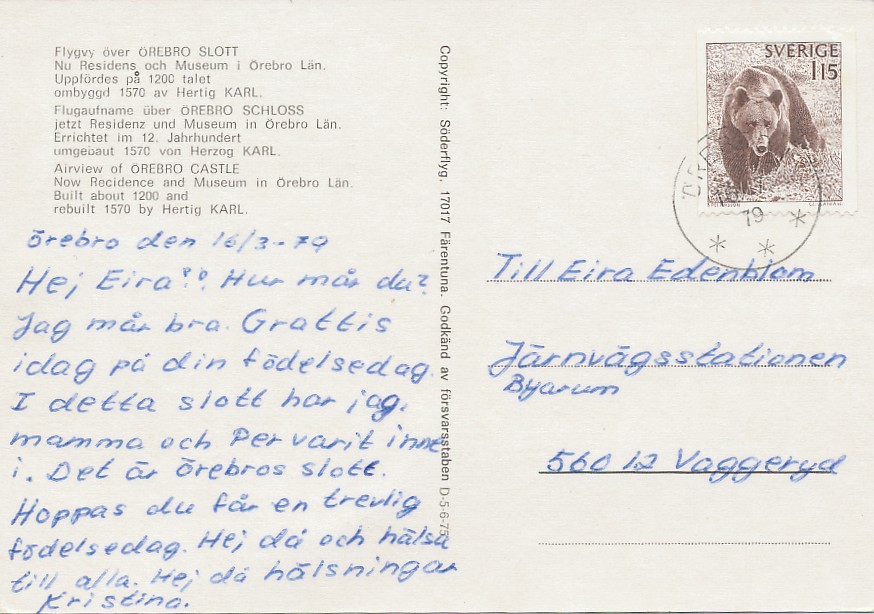 Flygvy över ÖREBRO SLOTT
Nu Residens och Museum i Örebro Län.
Uppfördes på 1200 talet
ombyggd 1570 av Hertig KARL.
Flugaufname über ÖREBRO SCHLOSS
jetzt Residenz und Museum in Örebro Län.
Errichtet im 12. Jahrhundert
umgebaut 1570 von Herzog KARL.
Airview of ÖREBRO CASTLE
Now Recidence and Museum in Örebro Län.
Built about 1200 and
rebuilt 1570 by Hertig KARL.
Örebro den 16/3-79
Hej Eira!! Hur mår du?
Jag mår bra. Grattis
idag på din födelsedag.
I detta slott har jag,
mamma och Per varit inne
i. Det är örebros slott.
Hoppas du får en trevlig
födelsedag. Hej då och hälsa
till alla. Hej då hälsningar
Kristina.
Copyright: Söderflyg, 17017 Färentuna. Godkänd av försvarsstaben D-5-6-75
SVERIGE
1 15
79
Till Eira Edenblom
Järnvägsstationen
Byarum
560 12 Vaggeryd